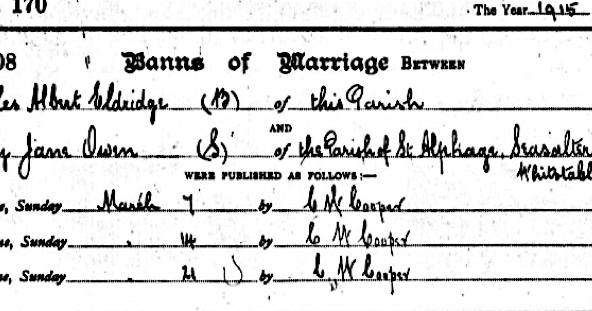 170 The Year 1915
08 Banns of Marriage BETWEEN
les Albert Eldridge (B) of this Parish
AND
y Jane Owen (S) of the Parish of St Alphage, Seasalter
Whitstabl
WERE PUBLISHED AS FOLLOWS:—
e, Sunday March 7 by C W Cooper
e, Sunday " 14 by C W Cooper
e, Sunday 21 by C W Cooper